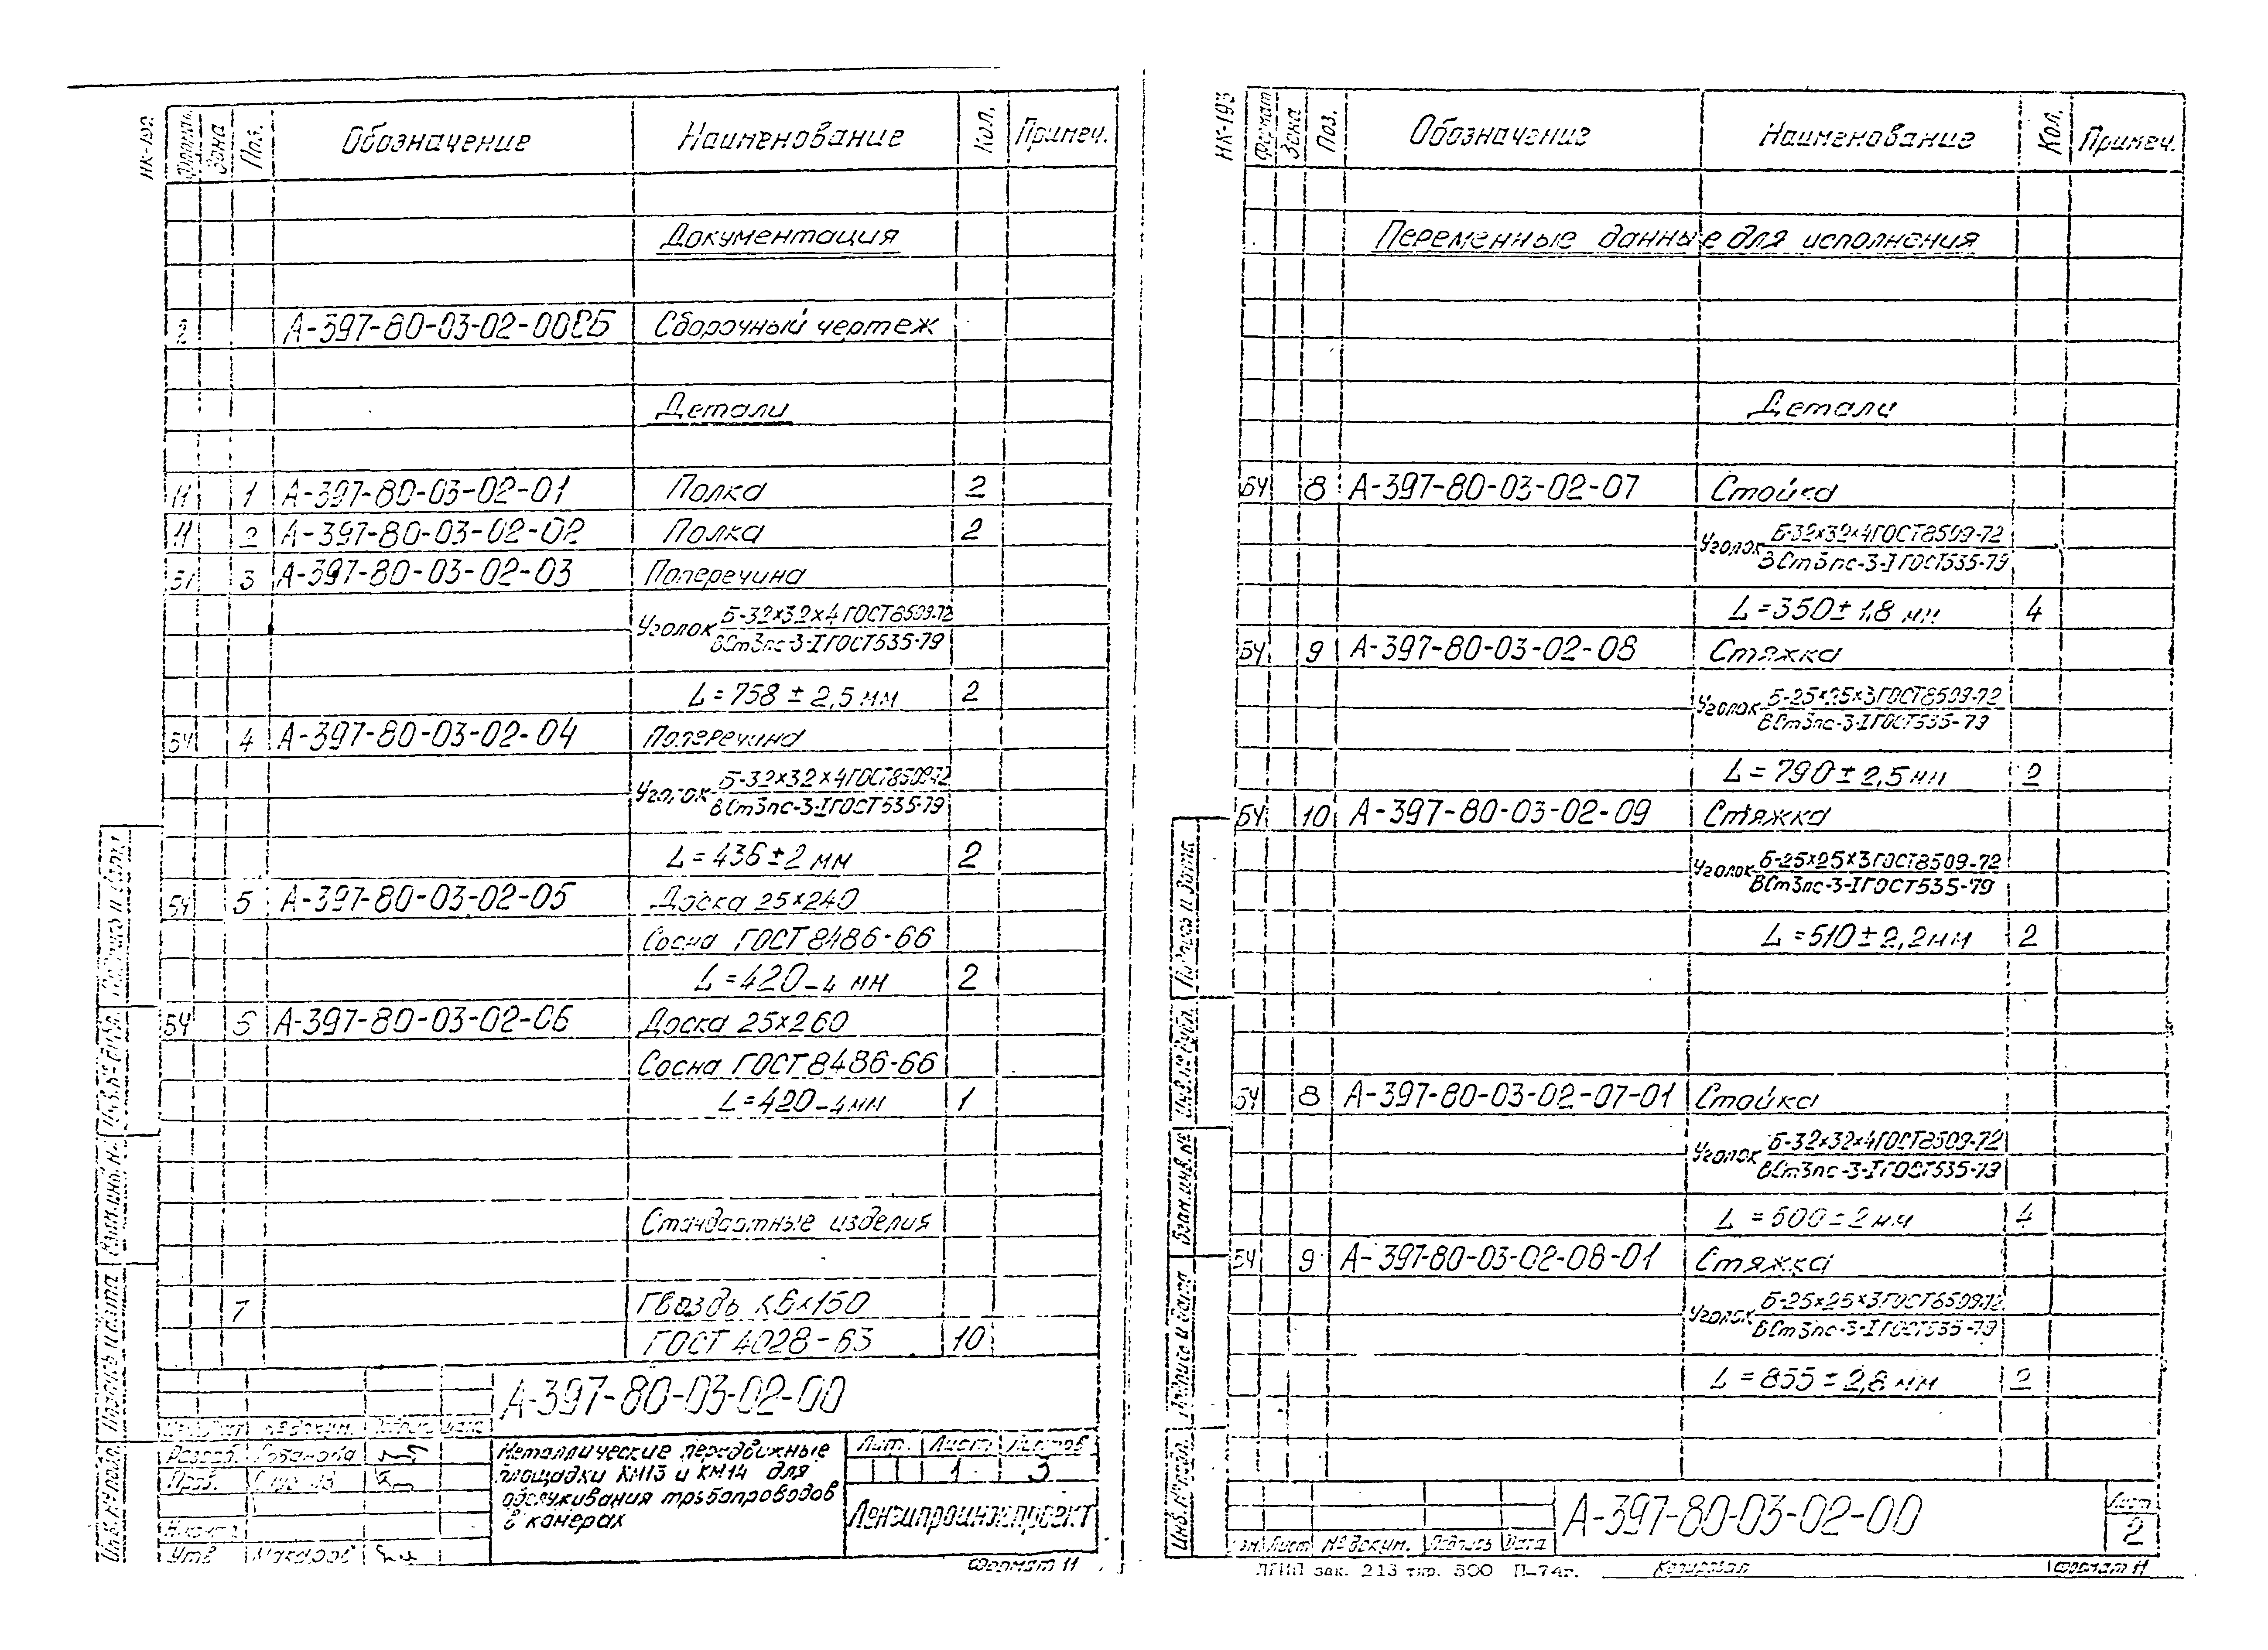 НК-192
Формат Зона Поз. Обозначение Наименование Кол. Примеч.
Документация
2 А-397-80-03-02-00СБ Сборочный чертеж
Детали
11 1 А-397-80-03-02-01 Полка 2
11 2 А-397-80-03-02-02 Полка 2
3 А-397-80-03-02-03 Поперечина
Уголок Б-32×32×4 ГОСТ 8509-72
ВСт3пс-3-I ГОСТ 535-79
L = 758 ± 2,5 мм 2
БЧ 4 А-397-80-03-02-04 Поперечина
Уголок Б-32×32×4 ГОСТ 8509-72
ВСт3пс-3-I ГОСТ 535-79
L = 436 ± 2 мм 2
БЧ 5 А-397-80-03-02-05 Доска 25×240
Сосна ГОСТ 8486-66
L = 420-4 мм 2
БЧ 6 А-397-80-03-02-06 Доска 25×260
Сосна ГОСТ 8486-66
L = 420-4 мм 1
Стандартные изделия
7 Гвоздь к6×150
ГОСТ 4028-63 10
А-397-80-03-02-00
№ докум.
Разраб.
Пров.
Н.контр.
Утв. Макаров
Металлические передвижные
площадки КМ13 и КМ14 для
обслуживания трубопроводов
в камерах
Лит. Лист Листов
1 3
Ленгипроинжпроект
Формат 11
Подпись и дата
Инв.№ дубл.
Взам.инв.№
Подпись и дата
Инв.№ подл.
НК-193
Формат Зона Поз. Обозначение Наименование Кол. Примеч.
Переменные данные для исполнения
Детали
БЧ 8 А-397-80-03-02-07 Стойка
Уголок Б-32×32×4 ГОСТ 8509-72
ВСт3пс-3-I ГОСТ 535-79
L = 350 ± 1,8 мм 4
БЧ 9 А-397-80-03-02-08 Стяжка
Уголок Б-25×25×3 ГОСТ 8509-72
ВСт3пс-3-I ГОСТ 535-79
L = 790 ± 2,5 мм 2
БЧ 10 А-397-80-03-02-09 Стяжка
Уголок Б-25×25×3 ГОСТ 8509-72
ВСт3пс-3-I ГОСТ 535-79
L = 510 ± 2,2 мм 2
БЧ 8 А-397-80-03-02-07-01 Стойка
Уголок Б-32×32×4 ГОСТ 8509-72
ВСт3пс-3-I ГОСТ 535-79
L = 500 ± 2 мм 4
БЧ 9 А-397-80-03-02-08-01 Стяжка
Уголок Б-25×25×3 ГОСТ 8509-72
ВСт3пс-3-I ГОСТ 535-79
L = 855 ± 2,8 мм 2
Подпись и дата
Инв.№ дубл.
Взам.инв.№
Подпись и дата
Инв.№ подл.
А-397-80-03-02-00
Лист
2
Изм. Лист № докум. Подпись Дата
зак. 213 тир. 500 П-74г.
Копировал
Формат 11